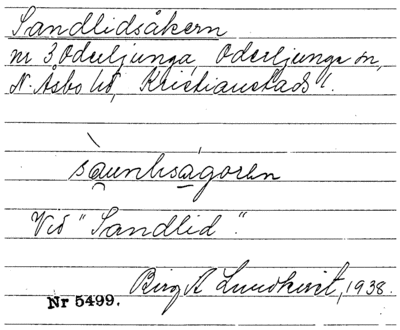 Sandlidsåkern
nr 3, Oderljunga, Oderljunga sn,
N. Åsbo hd, Kristianstads l.
Vid "Sandlid".
Birgit Lundkvist, 1938.
Nr 5499.